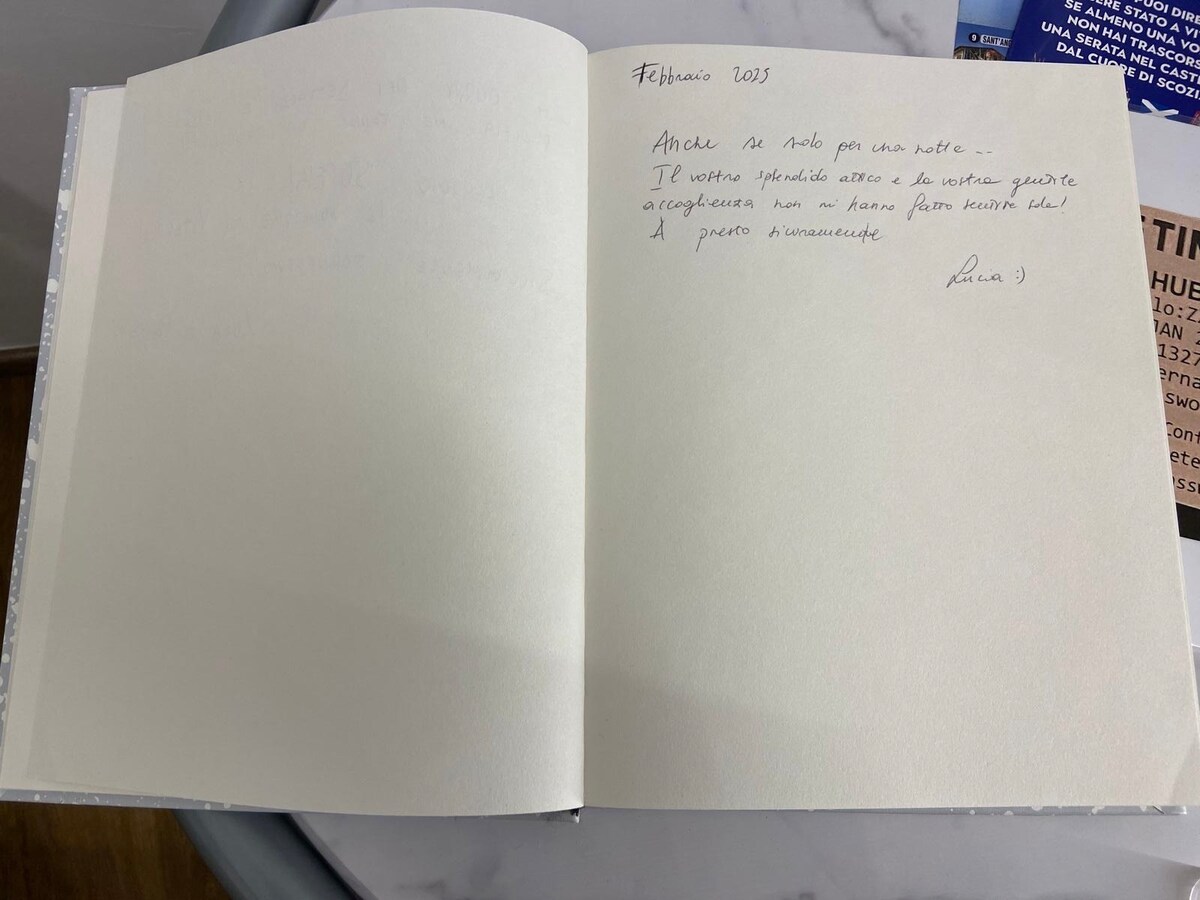 Febbraio 2025
Anche se solo per una notte...
Il vostro splendido attico e la vostra gentile
accoglienza non mi hanno fatto sentire sola!
A presto sicuramente
Lucia :)
PUOI DIRE
ERE STATO A VI
SE ALMENO UNA VO
NON HAI TRASCORS
UNA SERATA NEL CAST
DAL CUORE DI SCOZI
9 SANT'AN
TIN
HUE
lo:Z
JAN 2
1327
erna
swo
Conf
ete
assw